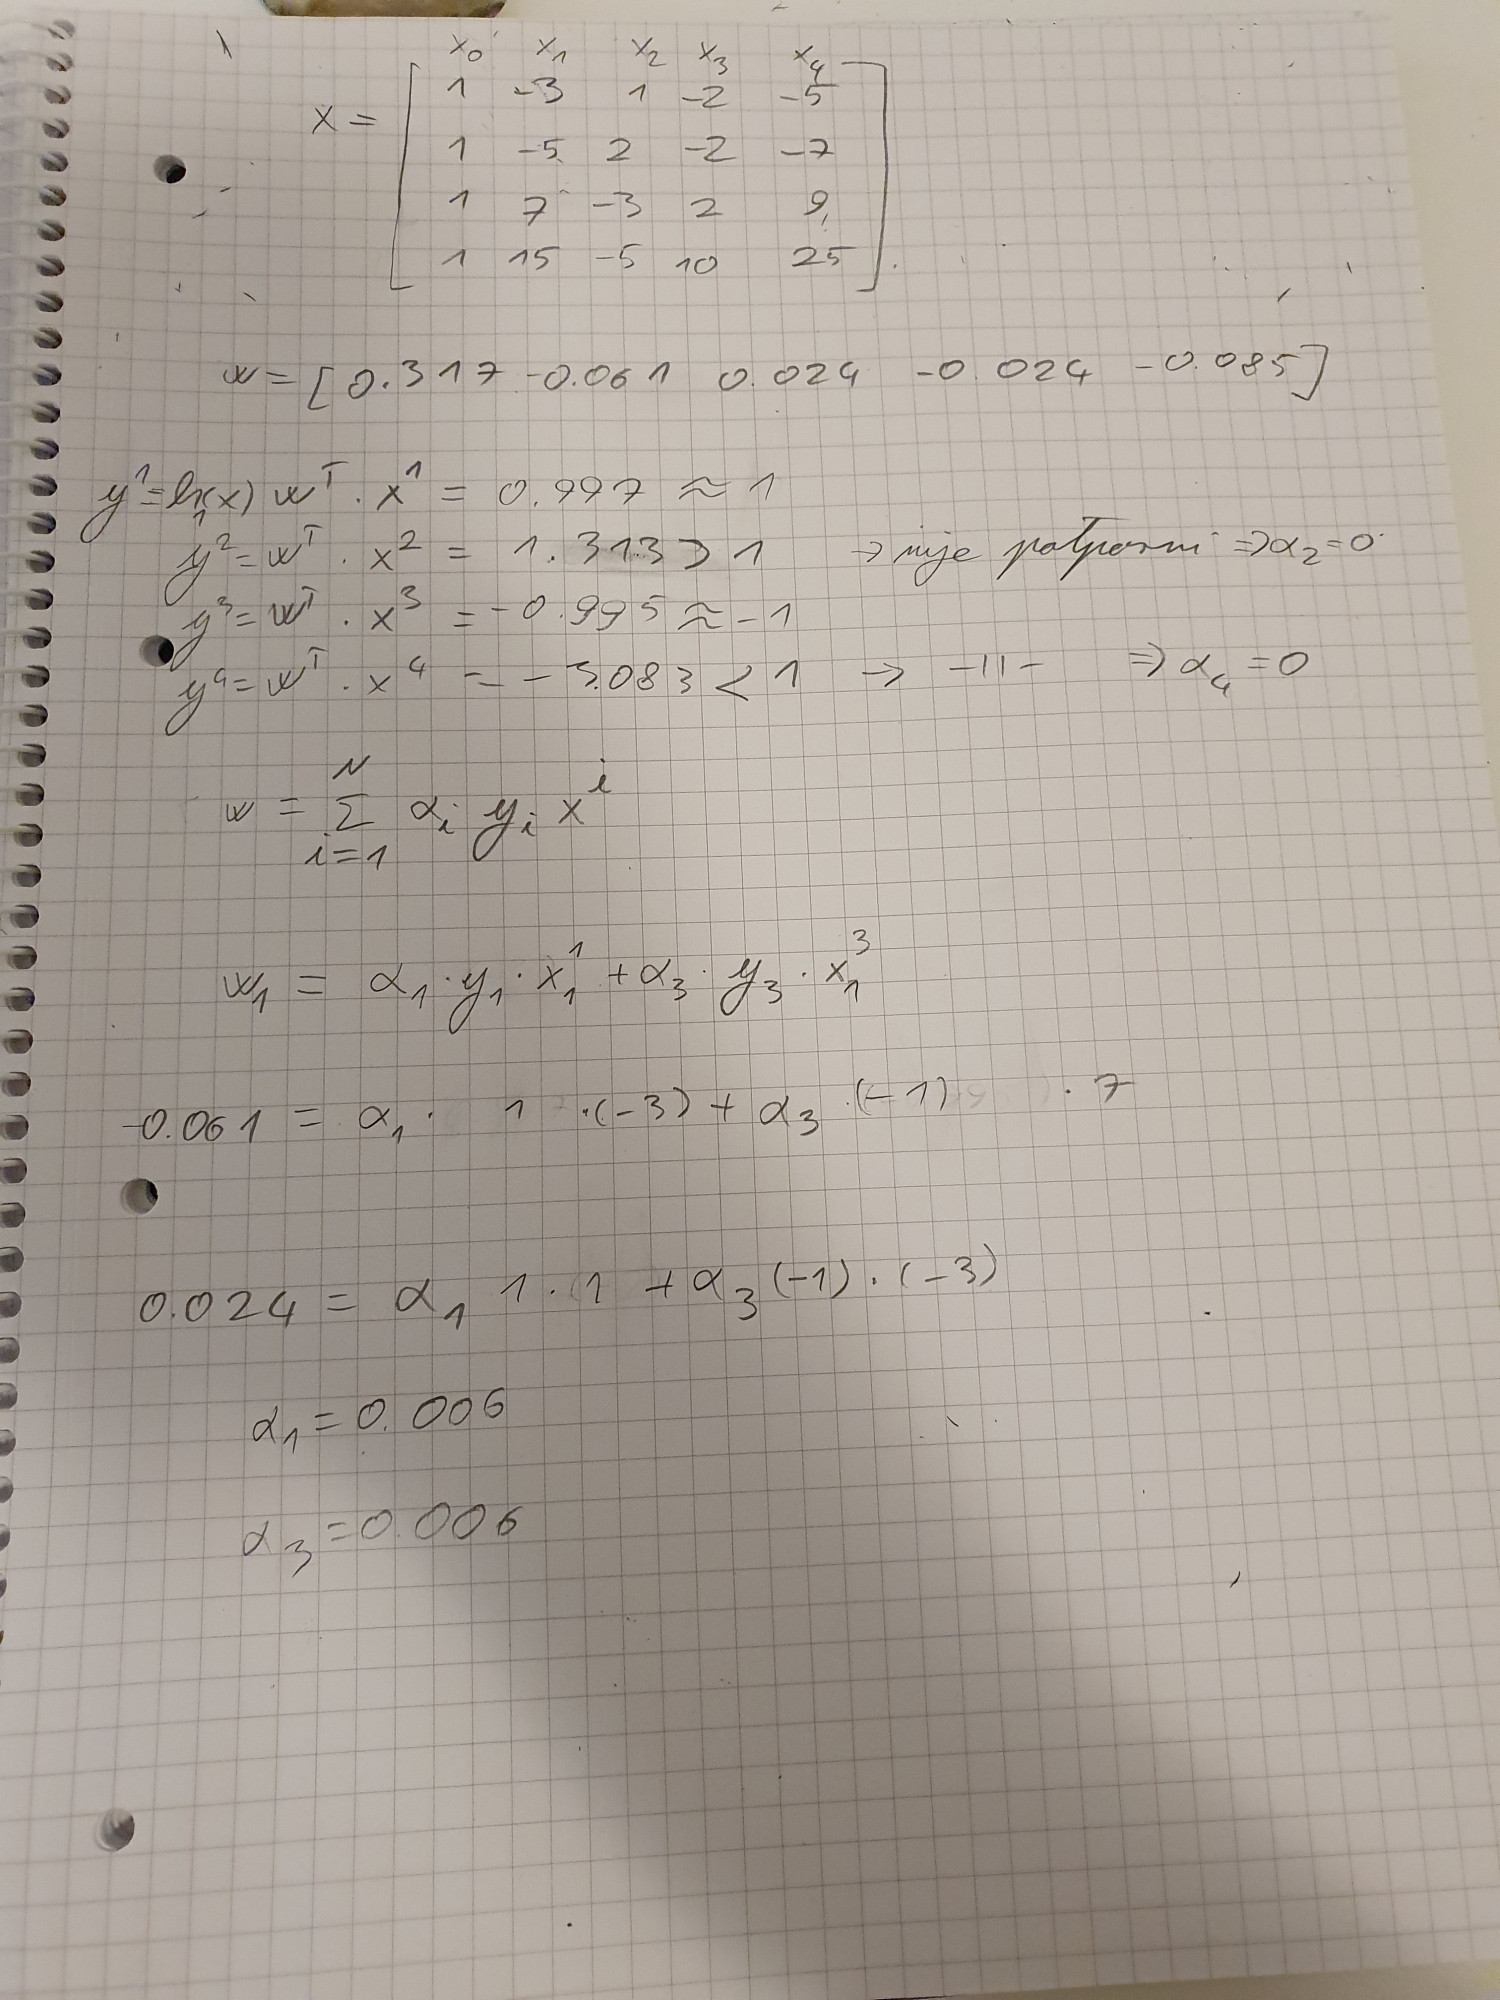 x₀ x₁ x₂ x₃ x₄
x = [ 1 -3 1 -2 -5
1 -5 2 -2 -7
1 7 -3 2 9
1 15 -5 10 25 ]
w = [ 0.317 -0.061 0.024 -0.024 -0.085 ]
y¹ = h(x) wᵀ · x¹ = 0.997 ≈ 1
y² = wᵀ · x² = 1.313 > 1 → nije potporni ⇒ α₂ = 0
y³ = wᵀ · x³ = -0.995 ≈ -1
y⁴ = wᵀ · x⁴ = -3.083 < 1 → -11- ⇒ α₄ = 0
N
w = Σ αᵢ yᵢ xⁱ
i=1
w₁ = α₁ · y₁ · x₁¹ + α₃ · y₃ · x₁³
-0.061 = α₁ · 1 · (-3) + α₃ · (-1) · 7
0.024 = α₁ 1 · 1 + α₃ (-1) · (-3)
α₁ = 0.006
α₃ = 0.006